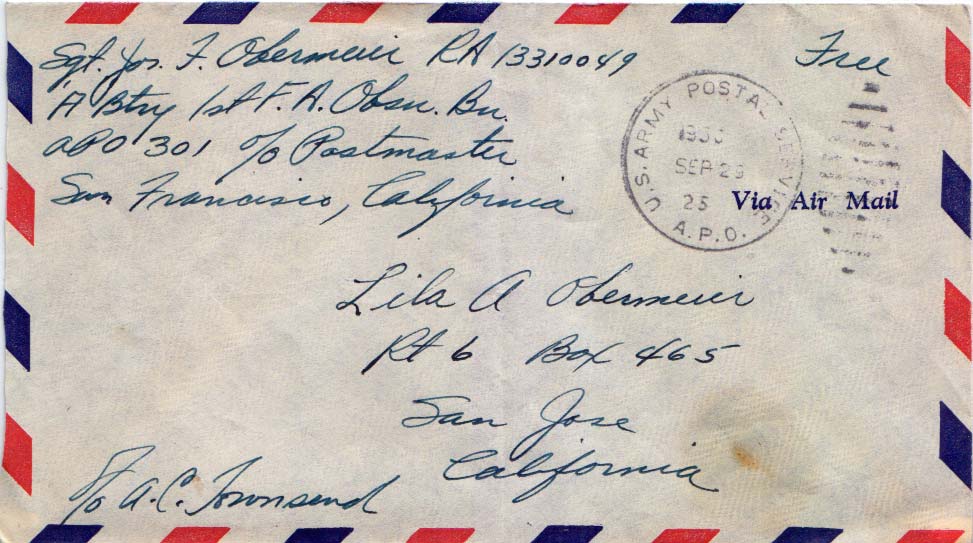 Sgt. Jos. F. Obermeier RA 13310049
"A" Btry 1st F. A. Obsn. Bn.
APO 301 c/o Postmaster
San Francisco, California
Free
U.S. ARMY POSTAL SERVICE
SEP 29
25
A.P.O.
Via Air Mail
Lila A Obermeier
Rt 6 Box 465
San Jose
California
c/o A.C. Townsend